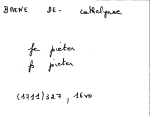 BAENE DE- Cathelyne
fa pieter
fs pieter
(1711) 327, 16v0